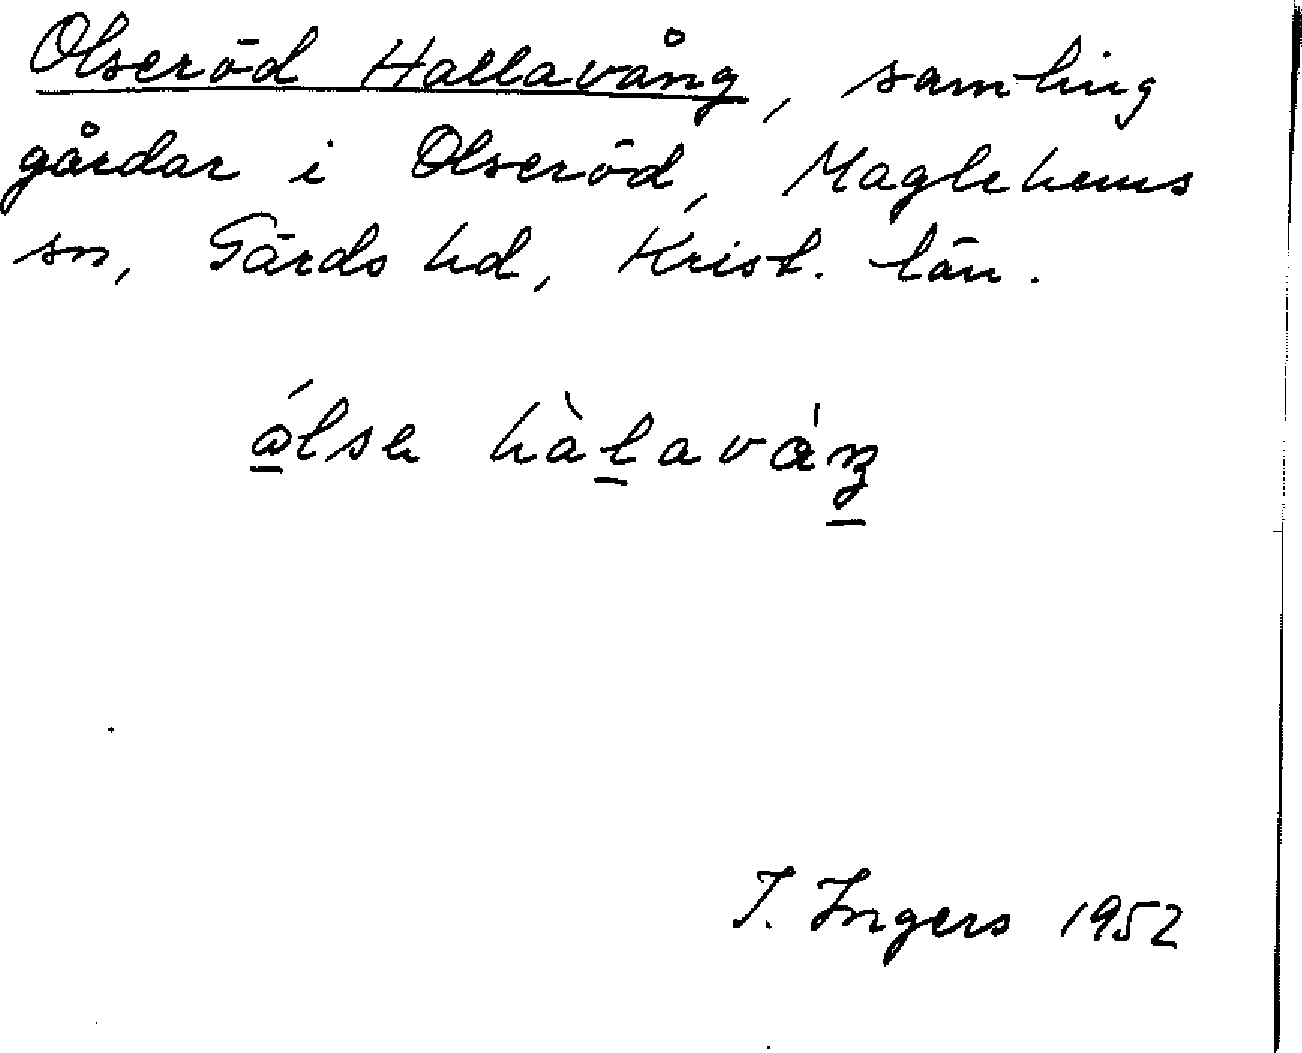 Olseröd Hallavång, samling
gårdar i Olseröd, Maglehems
sn, Gärds hd, Krist. län.
hàlaváŋ
I. Ingers 1952